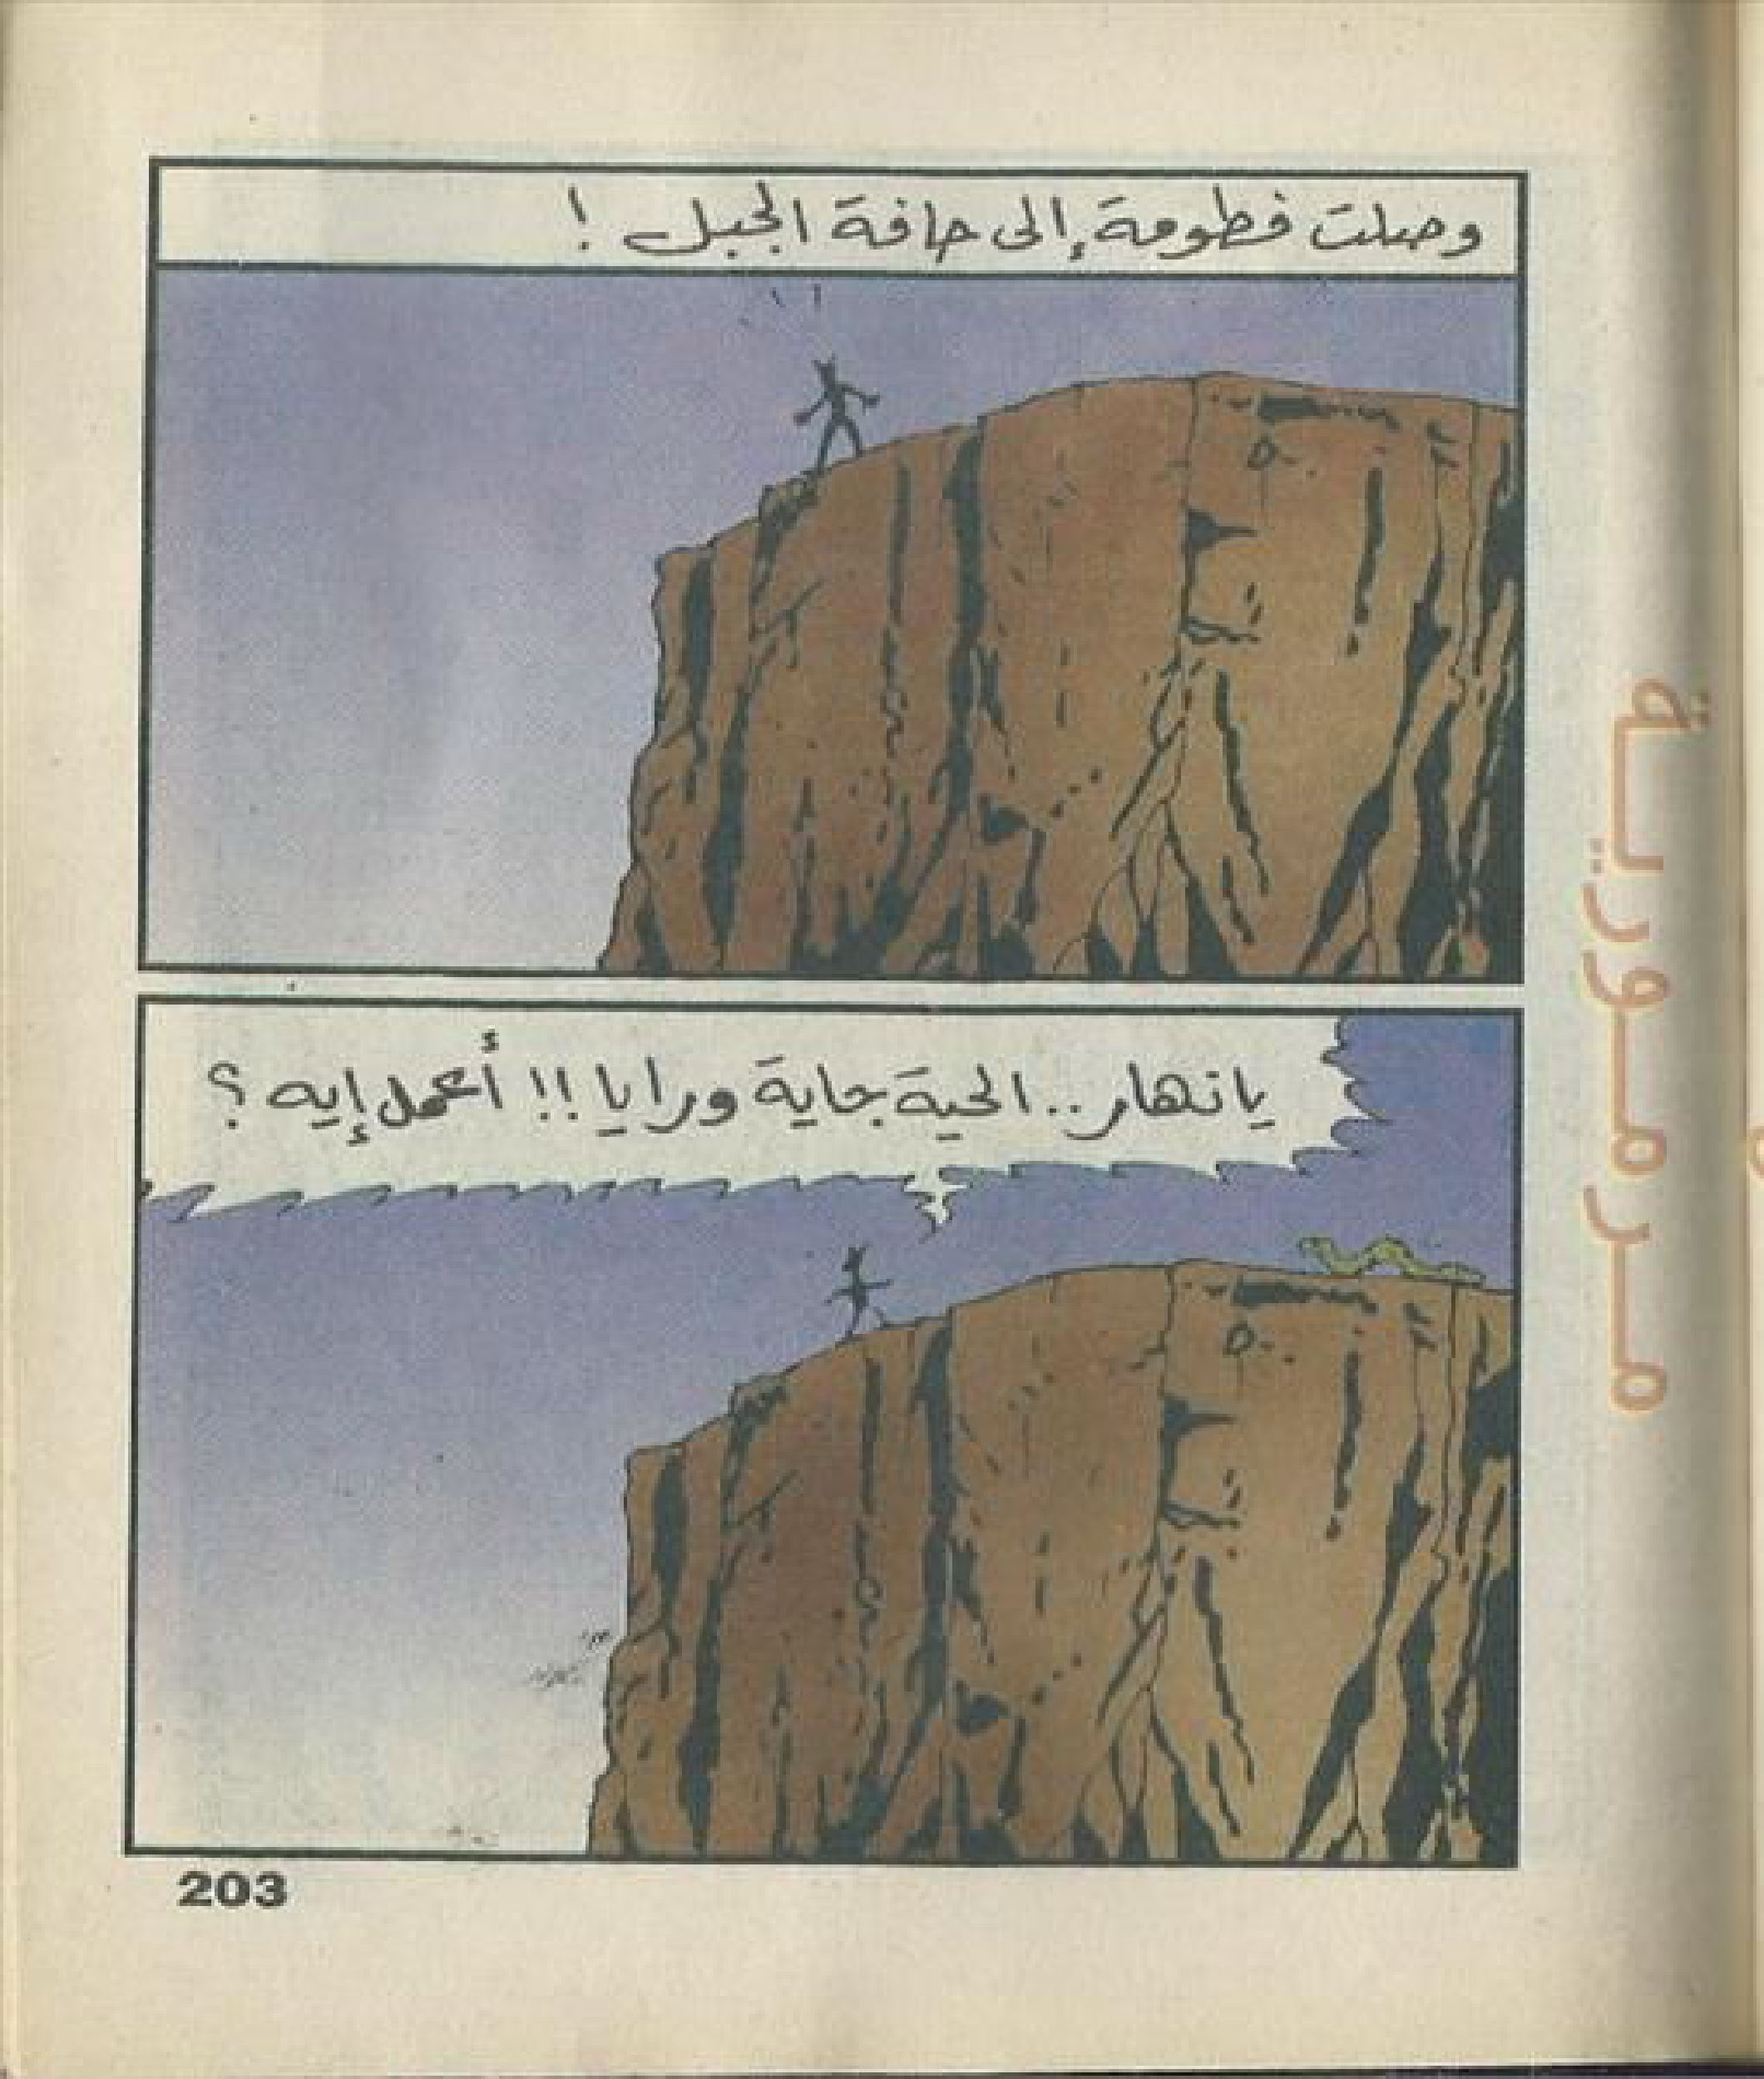 وصلت فطومة إلى حافة الجبل !
يا نهار.. الحية جاية ورايا !! أعمل إيه ؟
203
مرمورية